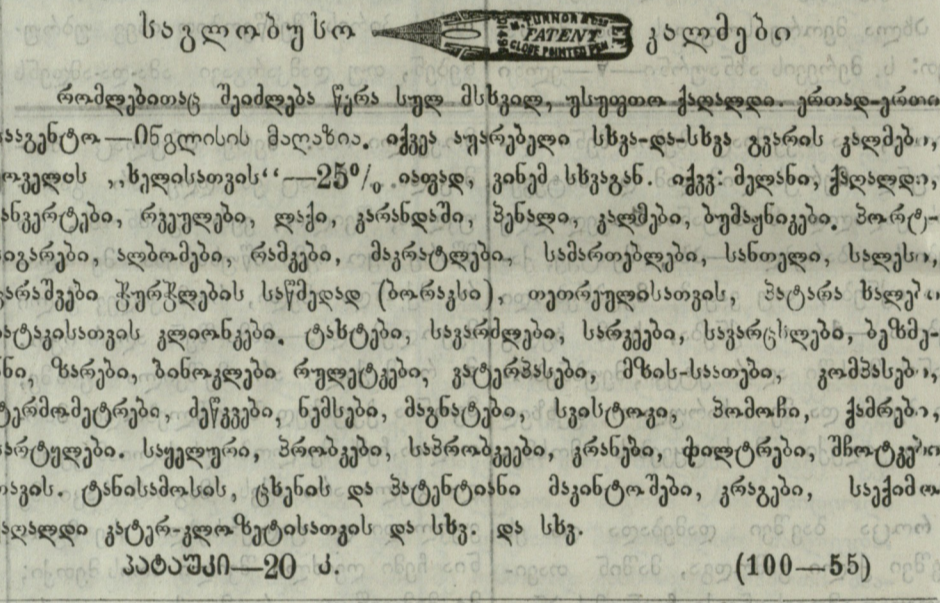 საგლობუსო TURNOR & Co's PATENT GLOBE POINTED PEN კალმები
რომლებითაც შეიძლება წერა სულ მსხვილ, უსუფთო ქაღალდი. ერთად-ერთი
სააგენტო—ინგლისის მაღაზია. იქვეა აუარებელი სხვა-და-სხვა გვარის კალმები,
„ხელისათვის“—25% იაფად, ვინემ სხვაგან. იქვე: მელანი, ქაღალდი,
კანვერტები, რვეულები, ლაქი, კარანდაში, პენალი, კალმები, ბუმაჟნიკები. პორტ-
სიგარები, ალბომები, რამკები, მაკრატლები, სამართებლები, სანთელი, სალესი,
ჭურჭლების საწმედად (ბორაკსი), თეთრეულისათვის, პატარა ხალები
იატაკისათვის კლიონკები. ტახტები, სავარძლები, სარკეები, სავარცხლები, ბეზმე-
ნი, ზარები, ბინოკლები რულეტკები, ვატერპასები, მზის-საათები, კომპასები,
ტერმომეტრები, ძეწკვები, ნემსები, მაგნატები, სვისტოკი, პომოჩი, ქამრები,
სარტყლები. საყელური, პრობკები, საპრობკეები, კრანები, ფილტრები, შჩოტკები
თავის. ტანისამოსის, ცხენის და პატენტიანი მაკინტოშები, კრაგები, საექიმო
ქაღალდი კატერ-კლოზეტისათვის და სხვ. და სხვ.
პატაუკი—20 კ. (100—55)